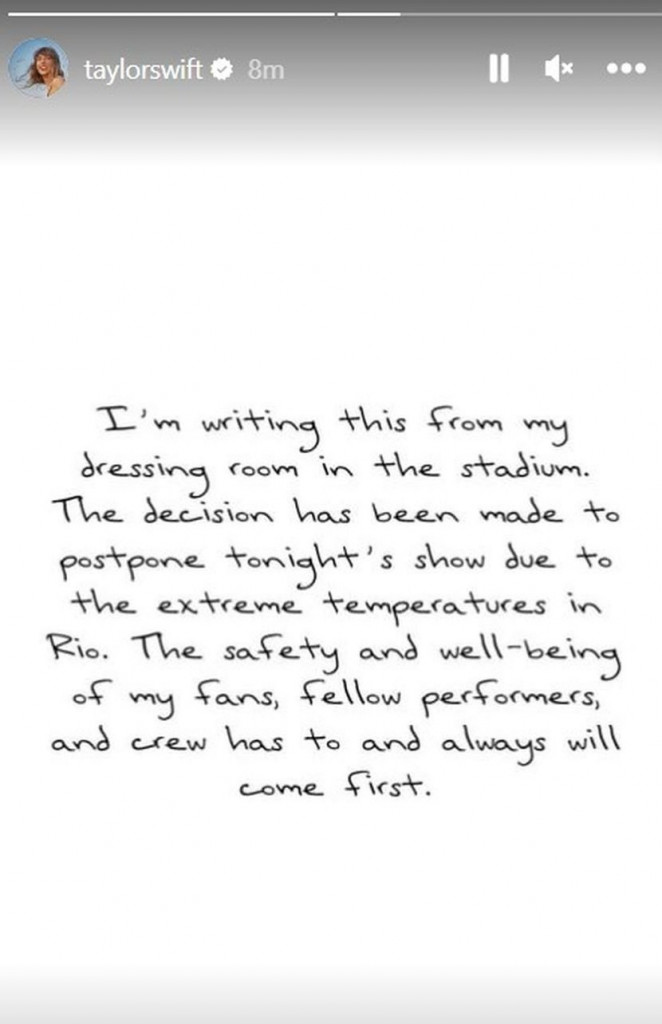 taylorswift 8m
I'm writing this from my
dressing room in the stadium.
The decision has been made to
postpone tonight's show due to
the extreme temperatures in
Rio. The safety and well-being
of my fans, fellow performers,
and crew has to and always will
come first.